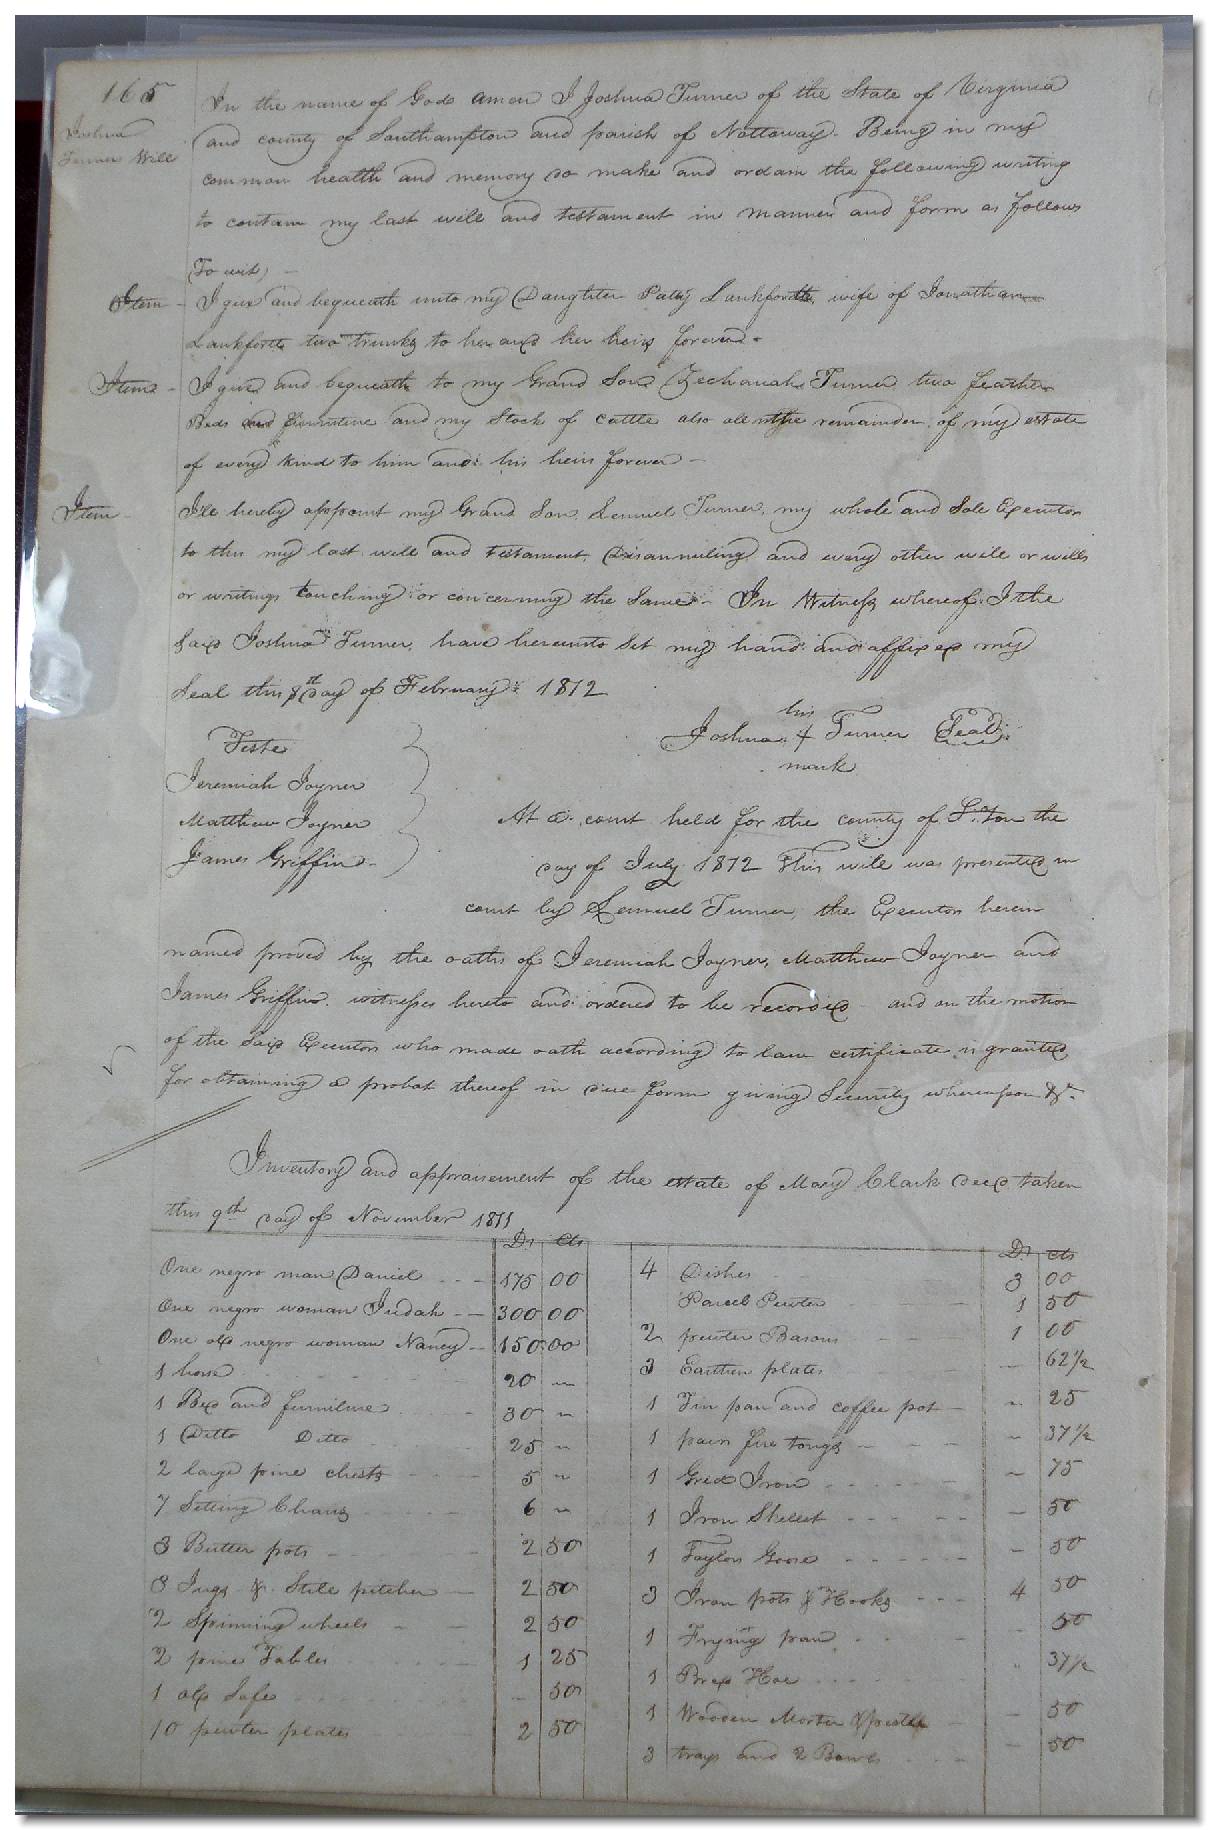 165
Joshua
Turner Will
In the name of God amen I Joshua Turner of the State of Virginia
and county of Southampton and parish of Nottaway. Being in my
common health and memory do make and ordain the following writing
to contain my last will and testament in manner and form as follows
(To wit) -
Item - I give and bequeath unto my Daughter Patsy Lankforth, wife of Jonathan
Lankforth two trunks to her and her heirs forever.
Item - I give and bequeath to my Grand Son Zechariah Turner two feather
Beds and furniture and my Stock of cattle also all the remainder of my estate
of every kind to him and his heirs forever -
Item - I do hereby appoint my Grand Son Lemuel Turner, my whole and Sole Executor
to this my last will and testament, Disannuling and every other will or wills
or writings touching or concerning the Same - In Witness whereof I the
Said Joshua Turner, have hereunto Set my hand and affixed my
Seal this 8th Day of February 1812
Teste
his
Joshua + Turner Seal
mark
Jeremiah Joyner
Matthew Joyner
James Griffin -
At a court held for the county of S.Ton the
day of July 1812 This will was presented in
court by Lemuel Turner, the Executor herein
named proved by the oaths of Jeremiah Joyner, Matthew Joyner and
James Griffin witnesses hereto and ordered to be recorded and on the motion
of the Said Executor who made oath according to law certificate is granted
for obtaining a probat thereof in due form giving Security whereupon &c.
Inventory and appraisement of the estate of Mary Clark decd taken
this 9th day of November 1811
Ds Cts
One negro man Daniel - - - 175 00
One negro woman Judah - - 300 00
One old negro woman Nancy - 150 00
1 horse 20 "
1 Bed and furniture 30 "
1 Ditto Ditto 25 "
2 large pine chests 5 "
7 Setting Chairs 6 "
3 Butter pots 2 50
3 Jugs & Stile pitcher 2 50
2 Spinning wheels 2 50
2 pine Tables 1 25
1 old Safe - 50
10 pewter plates 2 50
Ds cts
4 Dishes 3 00
Parcel Pewter 1 50
2 pewter Basons 1 00
3 Earthen plates - 62 1/2
1 Tin pan and coffee pot - " 25
1 pair fire tongs " 37 1/2
1 Grid Iron " 75
1 Iron Skillet - 50
1 Taylors Goose - 50
3 Iron pots & Hooks 4 50
1 Frying pan - 50
1 Broad Hoe " 37 1/2
1 Wooden Morter & pestle - 50
3 trays and 2 Bowls - 50